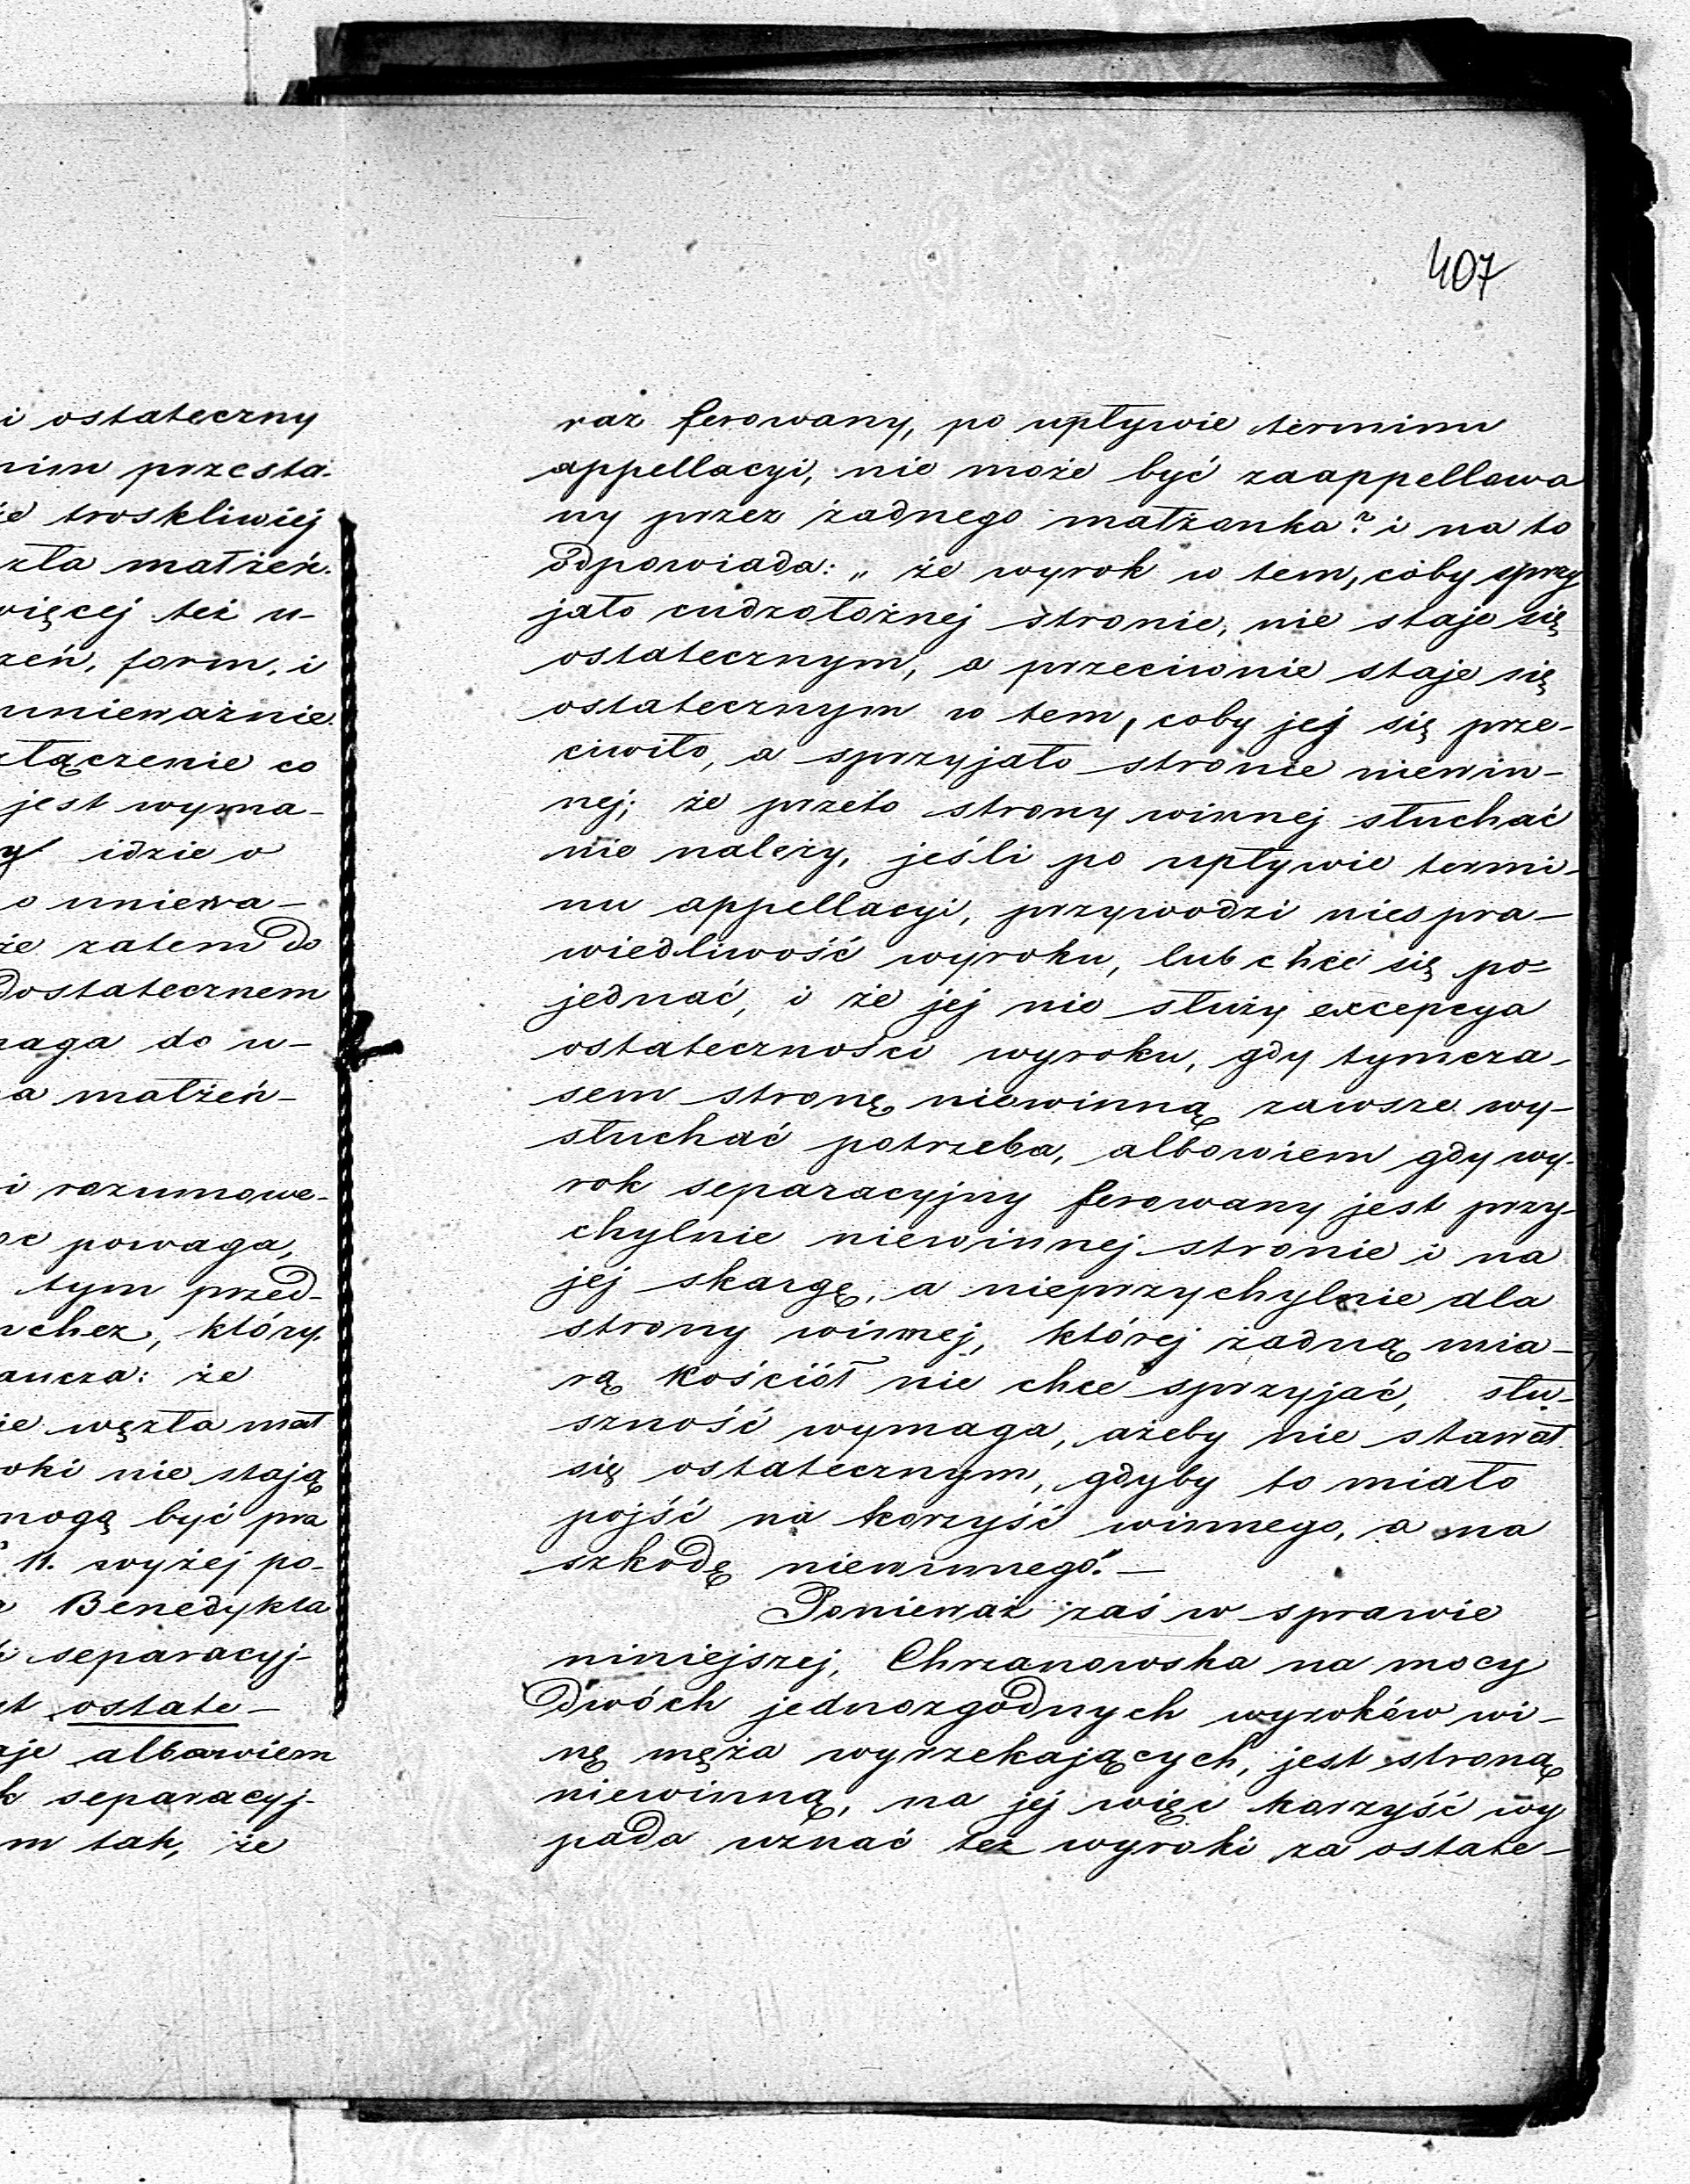 407
i ostateczny
nim przesta-
ie troskliwiej
zła małżeń.
więcej też u-
zeń, form, i
unieważnie
złączenie co
jest wyma-
y idzie o
o uniewa-
że zatem do
dostatecznem
maga do u-
a małżeń-
i rozumowe-
oc powaga,
tym przed-
nchez, który
aucza: że
ie węzła mał
oki nie stają
mogą być pra
11. wyżej po-
Benedykta
separacyj-
t ostate-
aje albowiem
k separacyj-
m tak, że
raz ferowany, po upływie terminu
appellacyi, nie może być zaappellowa
ny przez żadnego małżonka? i na to
odpowiada: „ że wyrok w tem, coby sprzy
jało cudzołożnej stronie, nie staje się
ostatecznym, a przeciwnie staje się
ostatecznym w tem, coby jej się prze-
ciwiło, a sprzyjało stronie niewin-
nej; że przeto strony winnej słuchać
nie należy, jeśli po upływie termi-
nu appellacyi, przywodzi niespra-
wiedliwość wyroku, lub chce się po-
jednać, i że jej nie służy excepcya
ostateczności wyroku, gdy tymcza-
sem stronę niewinną zawsze wy-
słuchać potrzeba, albowiem gdy wy-
rok separacyjny ferowany jest przy-
chylnie niewinnej stronie i na
jej skargę, a nieprzychylnie dla
strony winnej, której żadną mia-
rą kościół nie chce sprzyjać, słu-
szność wymaga, ażeby nie stawał
się ostatecznym, gdyby to miało
pojść na korzyść winnego, a na
szkodę niewinnego." —
Ponieważ zaś w sprawie
niniejszej, Chrzanowska na mocy
dwóch jednozgodnych wyroków wi-
nę męża wyrzekających, jest stroną
niewinną, na jej więc korzyść wy
pada uznać też wyroki za ostate-